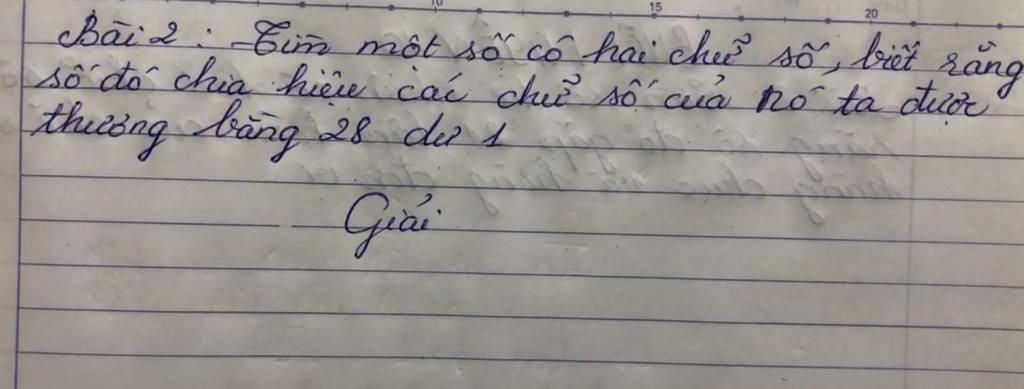 15 20
Bài 2 : Tìm một số có hai chữ số, biết rằng
số đó chia hiệu các chữ số của nó ta được
thương bằng 28 dư 1
Giải